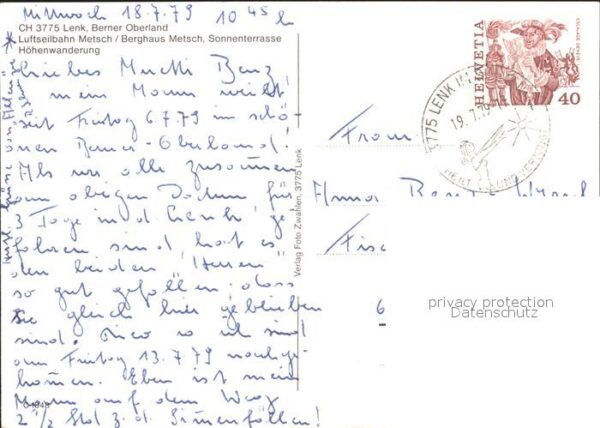 Mittwoch 18.7.79 10 45 h
CH 3775 Lenk, Berner Oberland
Luftseilbahn Metsch / Berghaus Metsch, Sonnenterrasse
Höhenwanderung
Liebes Muetti Benz!
mein Mann weilt
seit Freitag 6.7.79 im schö-
nen Berner-Oberland!
Als wir alle zusammen
am obigen Datum für
3 Tage in d. Lenk ge-
fahren sind hat es
den beiden "Herren"
so gut gefallen, dass
sie gleich hier geblieben
sind. Rico u. ich sind
am Freitag 13.7.79 nachge-
kommen. Eben ist mein
Mann auf dem Weg
2 ½ Std z. d. Simenfällen!
Verlag Foto Zwahlen, 3775 Lenk
HELVETIA
ESCALADE GENÈVE
40
3775 LENK IM
19.7.79
Frau
Anna Benz
privacy protection
Datenschutz